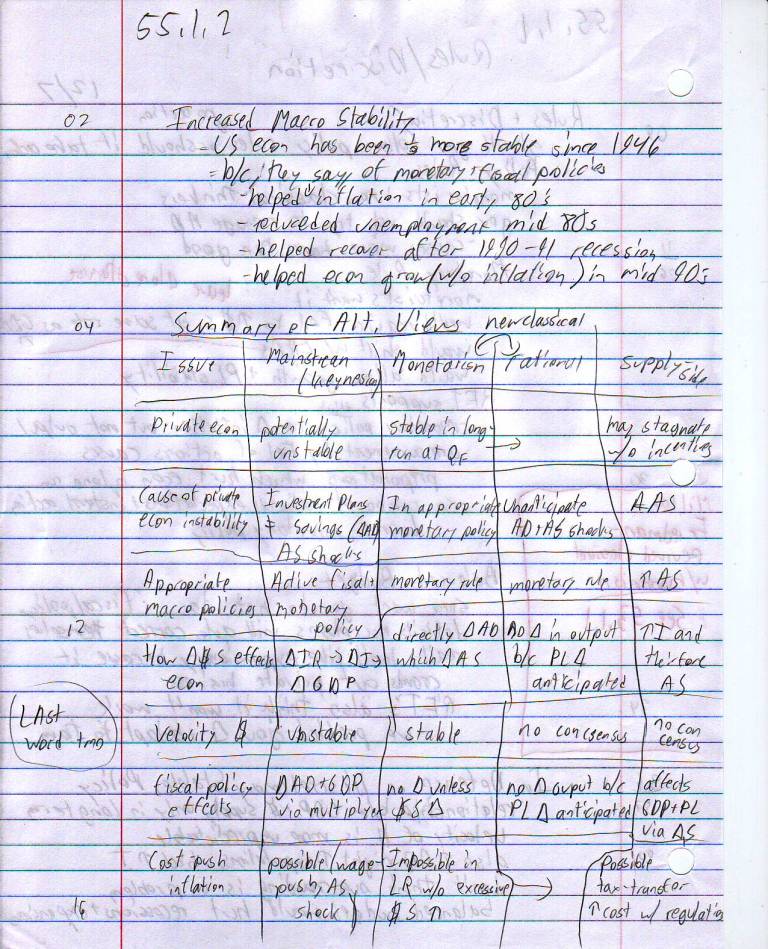 55.1.2
02 Increased Macro Stability
- US econ has been ⅓ more stable since 1946
= b/c, they say, of monetary + fiscal policies
- helped ↓ inflation in early 80's
- reduceded unemployment mid 80s
- helped recover after 1990-91 recession
- helped econ grow (w/o inflation) in mid 90's
04 Summary of Alt. Views newclassical
Issue Mainstream Monetarism rational supply-side
(keynesian)
Private econ potentially stable in long- → may stagnate
unstable run at QF w/o incentives
Cause of private Investment Plans Inappropriate Unanticipate ΔAS
econ instability ≠ Savings (ΔAD) monetary policy AD+AS shocks
AS shocks
Appropriate Active fisal + monetary rule monetary rule ↑ AS
macro policies monetary
12 policy directly ΔAD no Δ in output ↑I and
How Δ$S effects ΔIR → ΔI → which ΔAS b/c PLΔ therfore
econ ΔGDP anticipated AS
LAst
word tmo
Velocity $ unstable stable no concsensus no con
census
fiscal policy ΔAD+GDP no Δ unless no Δ ouput b/c affects
effects via multiplyer $SΔ PL Δ anticipated GDP+PL
via AS
Cost push possible (wage- Impossible in → Possible
inflation push, AS LR w/o excessive tax-transfer
16 shock) $S ↑ ↑ cost w/ regulation